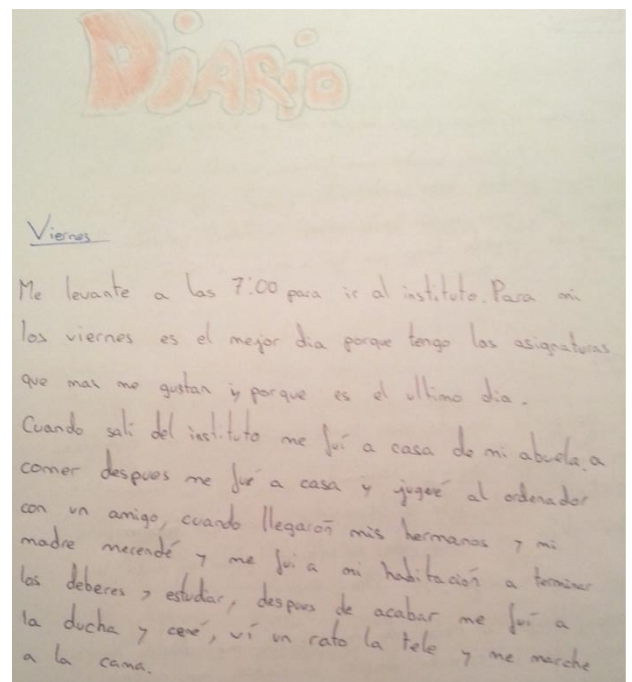 DiARio
Viernes
Me levante a las 7:00 para ir al instituto. Para mi
los viernes es el mejor dia porque tengo las asignaturas
que mas me gustan y porque es el ultimo dia.
Cuando salí del instituto me fuí a casa de mi abuela a
comer despues me fué a casa y jugeé al ordenador
con un amigo, cuando llegarón mis hermanos y mi
madre merendé y me fui a mi habitación a terminar
los deberes y estudiar, despues de acabar me fuí a
la ducha y cené, ví un rato la tele y me marche
a la cama.